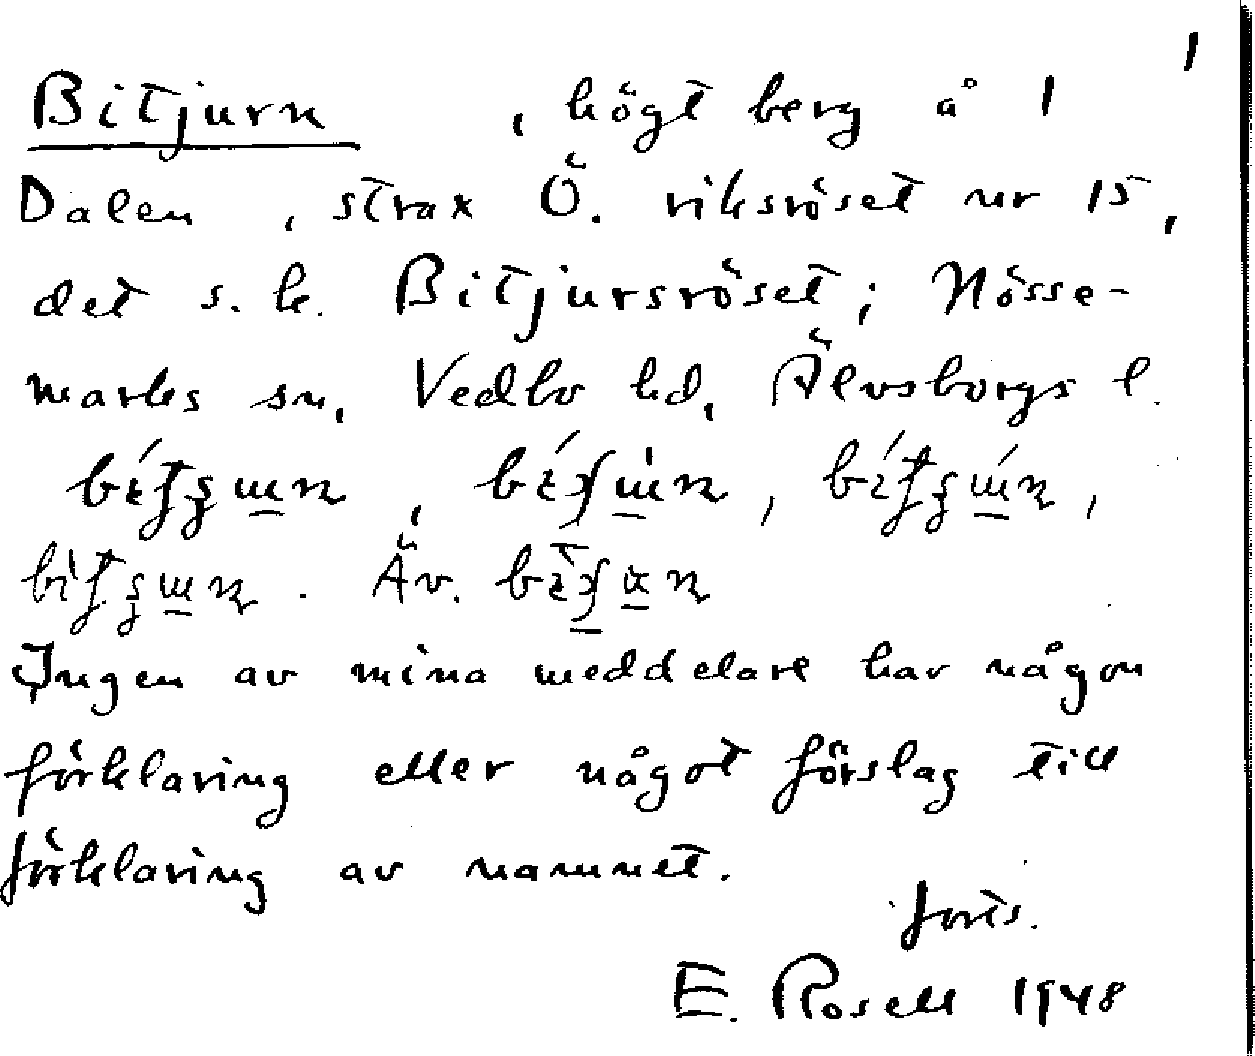 1
Bitjurn, högt berg å 1
Dalen, strax Ö. riksröset nr 15,
det s. k. Bitjursröset; Nösse-
marks sn, Vedbo hd, Älvsborgs l.
Äv.
Ingen av mina meddelare har någon
förklaring eller något förslag till
förklaring av namnet.
forts.
E. Rosell 1948